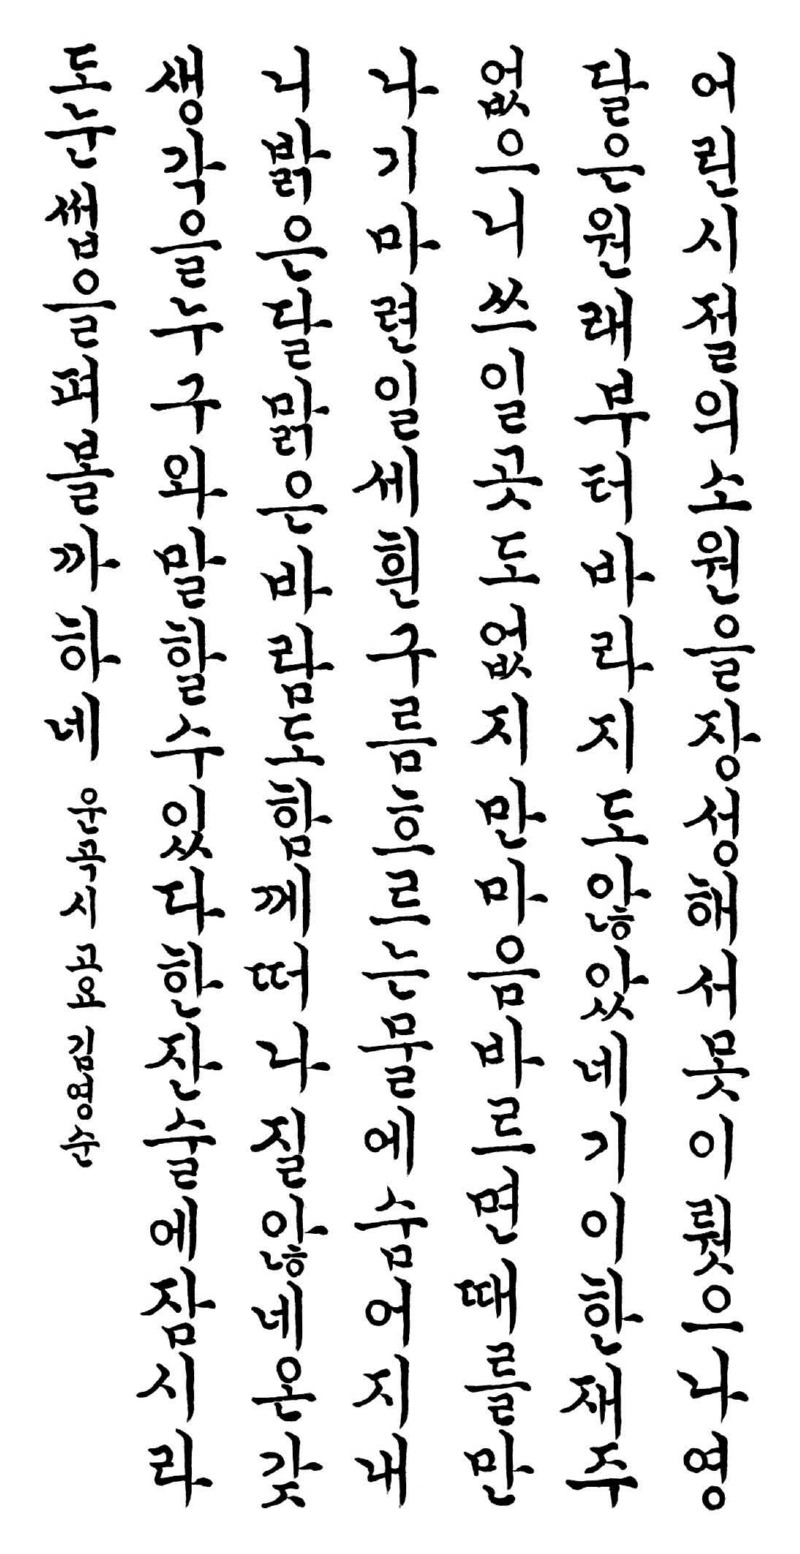 어린시절의소원을장성해서못이뤗으나영
달은원래부터바라지도않았네기이한재주
없으니쓰일곳도없지만마음바르면때를만
나기마련일세흰구름흐르는물에숨어지내
니밝은달맑은바람도함께떠나질않네온갖
생각을누구와말할수있다한잔술에잠시라
도눈썹을펴볼까하네 운곡시 고요 김영순